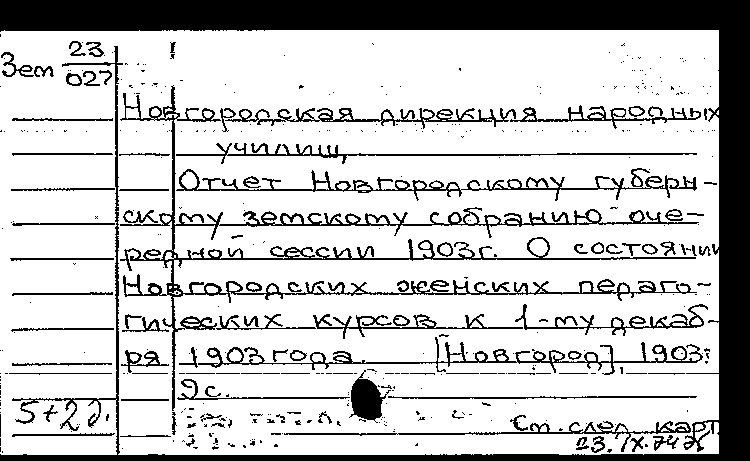 Зем 23/027
Новгородская дирекция народных
училищ,
Отчет Новгородскому губерн-
скому земскому собранию оче-
редной сессии 1903г. О состоянии
Новгородских женских педаго-
гических курсов к 1-му декаб-
ря 1903 года. [Новгород], 1903.
9с.
5+2д.
Без тит. л.
См. след. карт.